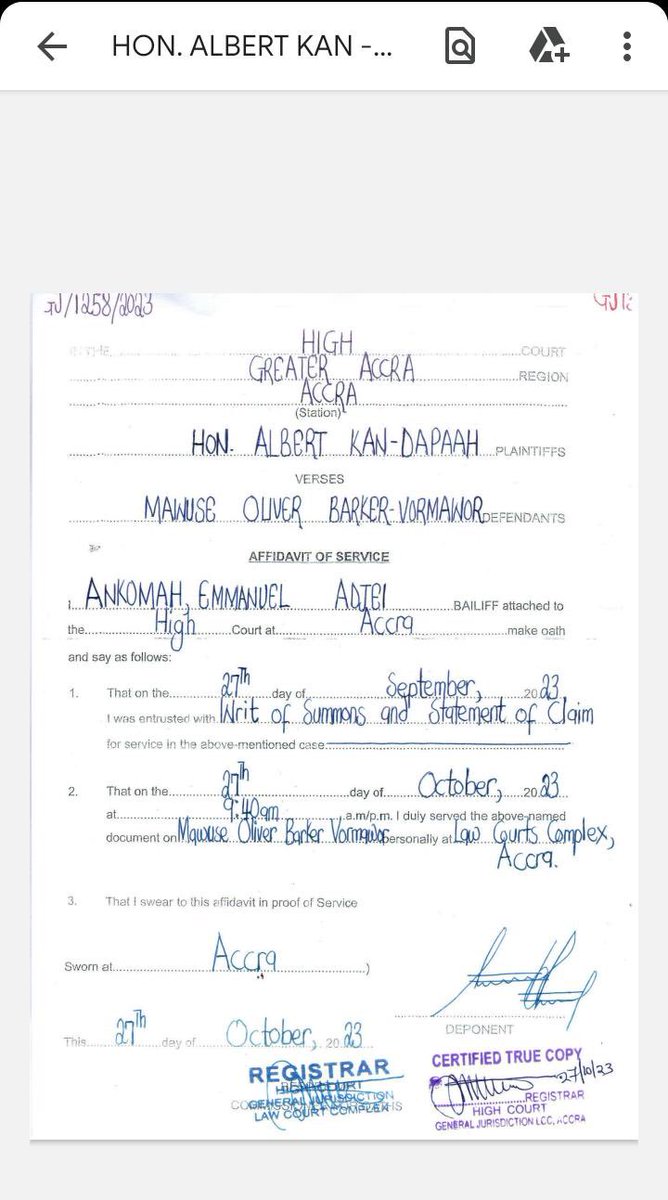 HON. ALBERT KAN -...
GJ/1258/2023
GJ12
IN THE COURT
HIGH
GREATER ACCRA REGION
ACCRA
(Station)
HON. ALBERT KAN-DAPAAH PLAINTIFFS
VERSES
MAWUSE OLIVER BARKER-VORMAWOR DEFENDANTS
AFFIDAVIT OF SERVICE
I ANKOMAH, EMMANUEL ADJEI BAILIFF attached to
the High Court at Accra make oath
and say as follows:
1. That on the 27th day of September, 2023
I was entrusted with Writ of Summons and Statement of Claim
for service in the above-mentioned case
2. That on the 27th day of October, 2023
at 9:40am a.m/p.m. I duly served the above named
document on Mawuse Oliver Barker Vormawor personally at Law Courts Complex,
Accra.
3. That I swear to this affidavit in proof of Service
Sworn at Accra )
DEPONENT
This 27th day of October, 2023
REGISTRAR
HIGH COURT
GENERAL JURISDICTION
LAW COURT COMPLEX
CERTIFIED TRUE COPY
27/10/23
REGISTRAR
HIGH COURT
GENERAL JURISDICTION LCC, ACCRA